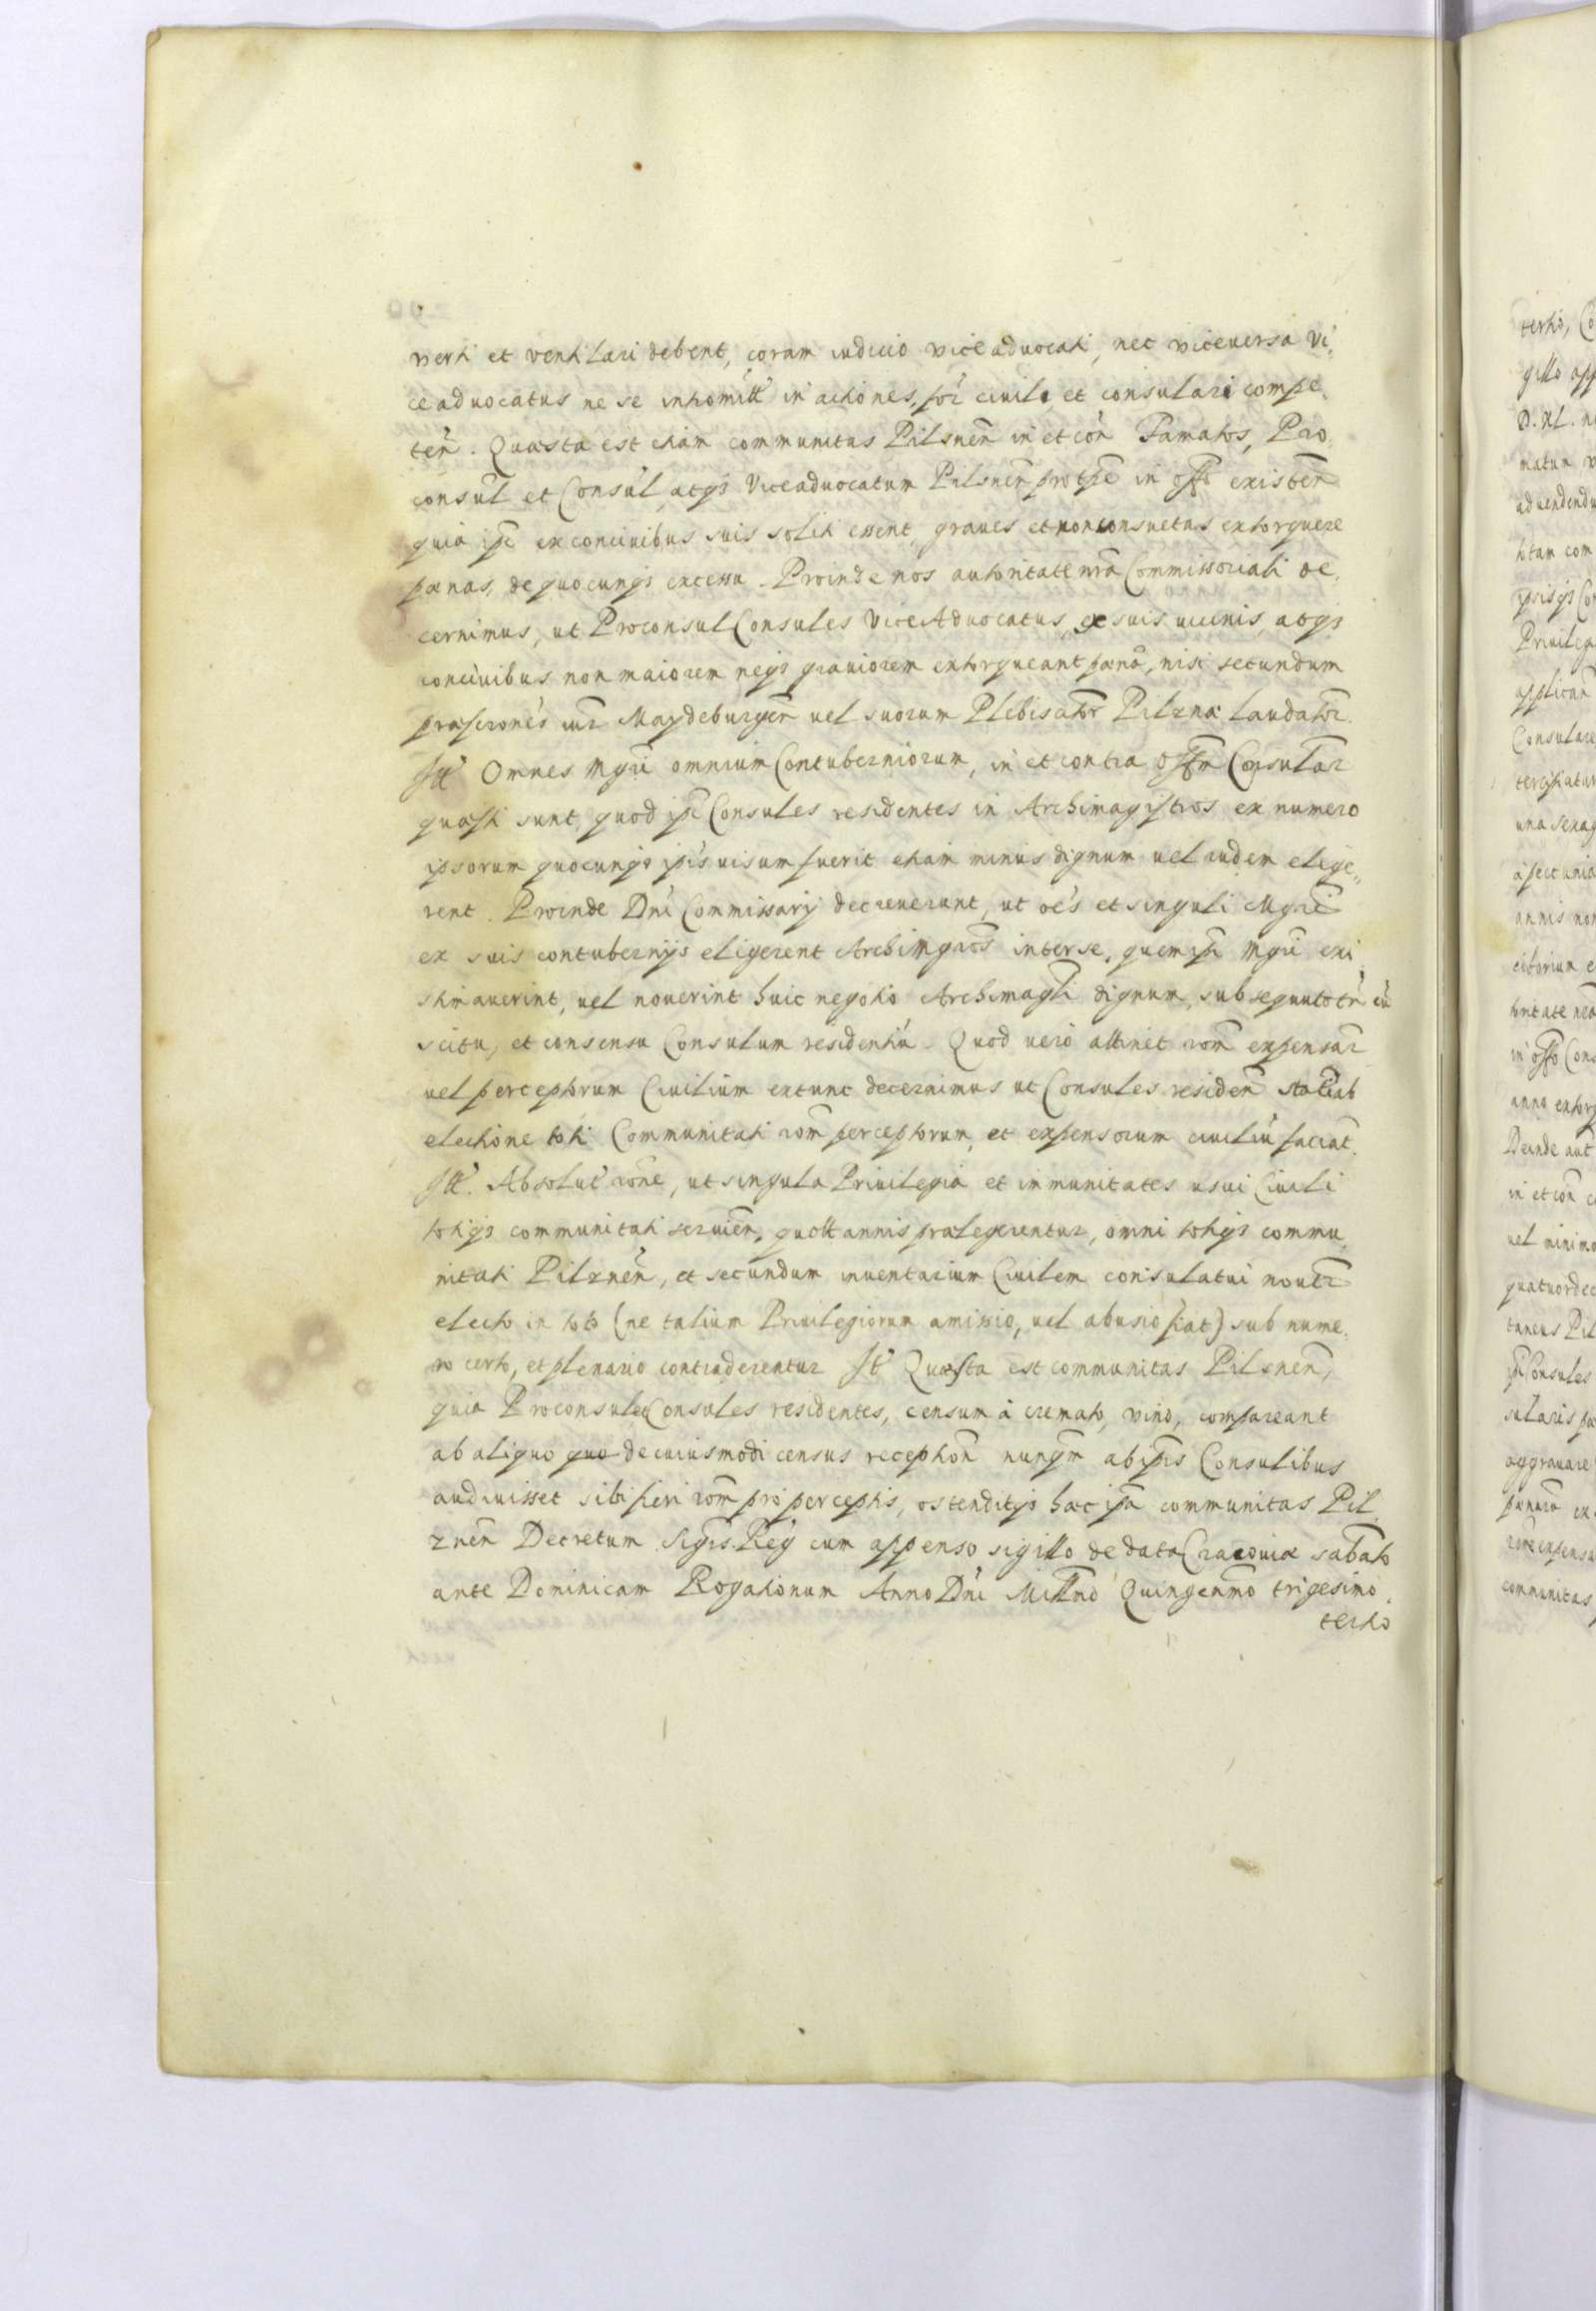 verti et ventilari debent, coram iudicio viceadvocati, nec viceversa Vi,
ceadvocatus ne se intromitt in actiones, for civile, et consulari compe,
ten. Quæsta est etiam communitas Pilsnen in et con Famatos, Pro
consul et Consul, atqs Viceadvocatum Pilsnen pro tpe in offo existen
quia ipi ex concivibus suis soliti essent, graves et non consuetas extorquere
pænas, de quocunqs excessu. Proinde nos autoritate nra Commissoriali de,
cernimus, ut Proconsul Consules ViceAdvocatus, ex suis vicinis, atqs
concivibus non maiorem neqs graviorem extorqueant pænã, nisi secundum
præscrones iur Maydeburgen vel suorum Plebiscitor Pilznæ laudator.
Itt Omnes Mgri omnium Contuberniorum, in et contra offm Consular
quæsti sunt, quod ipi Consules residentes in Archimagistros ex numero
ipsorum quocunqs ipis visum fuerit etiam minus dignum vel rudem elige„
rent. Proinde Dni Commissarij decreverunt, ut oes et singuli Mgri
ex suis contubernijs eligerent Archimgros inter se, quem ipi Mgri exi
stimaverint, vel noverint huic negotio Archimagri dignum, subsequuto tn cũ
scitu, et consensu Consulum residentiũ. Quod vero attinet rom expensar
vel perceptorum Civilium extunc decernimus ut Consules residen statim ab
electione toti Communitati rom perceptorum, et expensorum civiliũ faciat.
Itt. Absolut rone, ut singula Privilegia et inmunitates usui Civili
totiqs communitati servien, quott annis prælegerentur, omni totiqs commu
nitati Pilznen, et secundum inventarium Civilem consulatui noviter
electo in toto (ne talium Privilegiorum amissio, vel abusio fiat) sub nume,
ro certo, et plenario contraderentur Itt Quæsta est communitas Pilsnen,
quia Proconsul et Consules residentes, censum à cremato, vino, compareant
ab aliquo quo de cuiusmodi census reception nunqm ab ipis Consulibus
audivisset sibi fieri rom pro perceptis, ostenditqs hæc ipa communitas Pil,
znen Decretum Sigis. Reg cum appenso sigillo de data Cracoviæ sabato
ante Dominicam Rogationum Anno Dni Millmo Quingenmo trigesimo
tertio